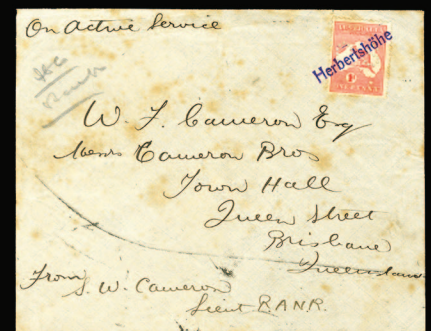 On Active Service
AUSTRALIA
Herbertshöhe
ONE PENNY
W. F. Cameron Esq
Messrs Cameron Bros
Town Hall
Queen Street
Brisbane
Queensland
From
S. W. Cameron
Lieut R.A.N.R.